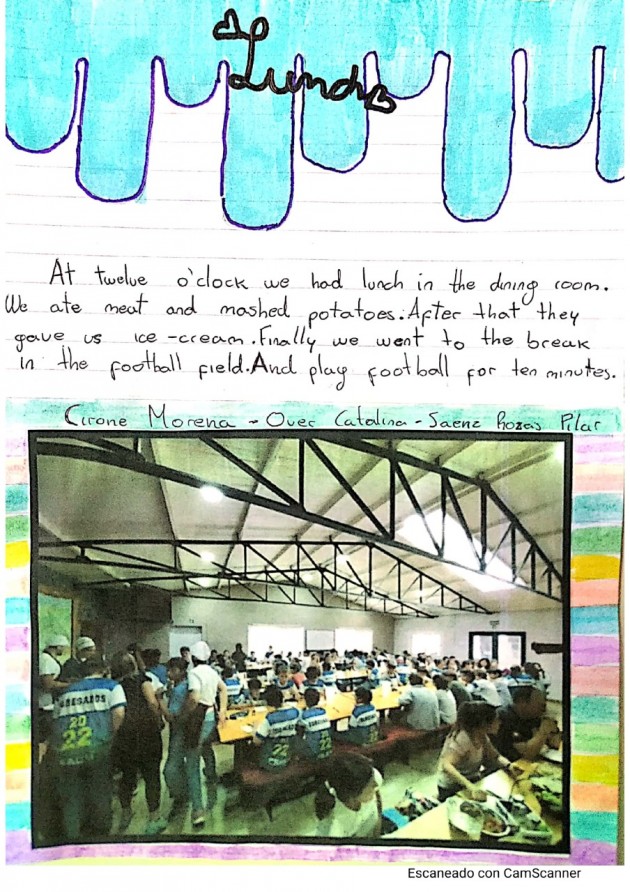 Lunch
At twelve o'clock we had lunch in the dining room.
We ate meat and mashed potatoes. After that they
gave us ice-cream. Finally we went to the break
in the football field. And play football for ten minutes.
Cirone Morena - Over Catalina - Saenz Rozas Pilar
EGRESADOS
20
22
22
22
22
Escaneado con CamScanner